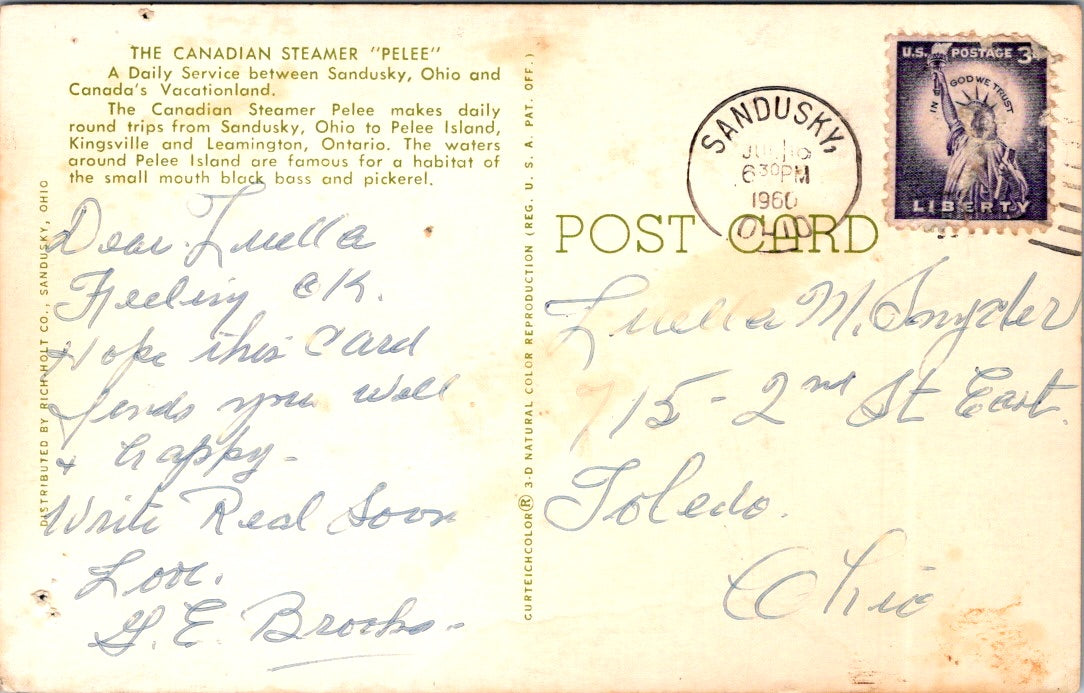 THE CANADIAN STEAMER "PELEE"
A Daily Service between Sandusky, Ohio and
Canada's Vacationland.
The Canadian Steamer Pelee makes daily
round trips from Sandusky, Ohio to Pelee Island,
Kingsville and Leamington, Ontario. The waters
around Pelee Island are famous for a habitat of
the small mouth black bass and pickerel.
DISTRIBUTED BY RICH HOLT CO., SANDUSKY, OHIO
Dear Luella
Feeling OK.
Hope this Card
finds you well
& happy-
Write Real Soon
Love.
G. E. Brooks-
CURTEICHCOLOR® 3-D NATURAL COLOR REPRODUCTION (REG. U. S. A. PAT. OFF.)
SANDUSKY,
6 30 PM
1960
OHIO
U.S. POSTAGE 3
IN GOD WE TRUST
LIBERTY
POST CARD
Luella M. Snyder
715 - 2nd St East.
Toledo.
Ohio